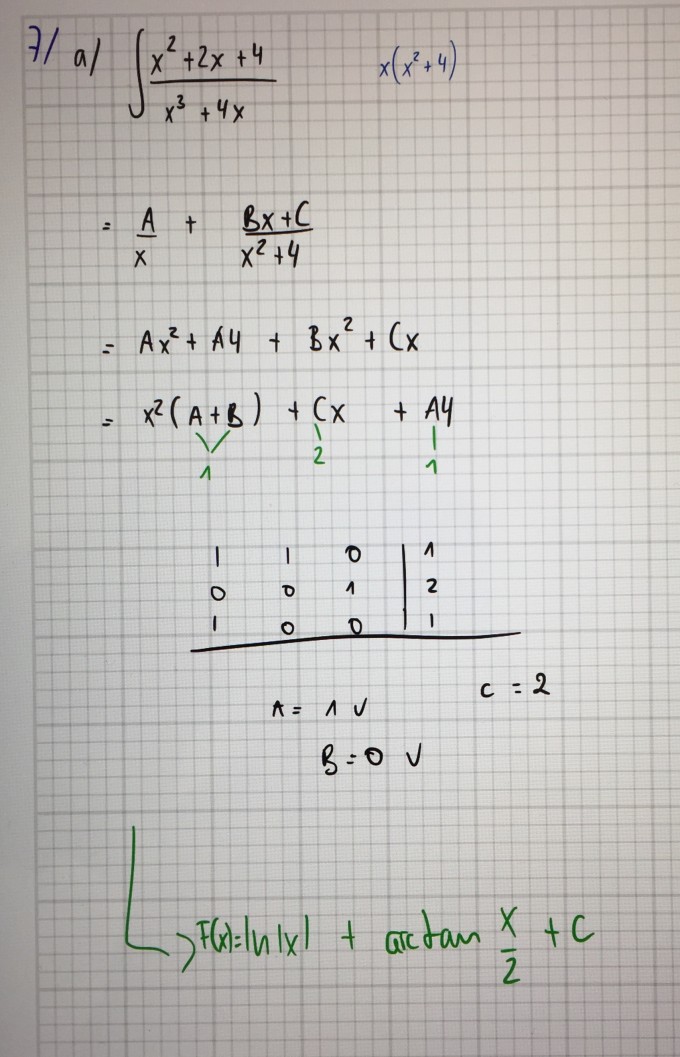 7/ a/ ∫ (x² + 2x + 4)/(x³ + 4x) x(x² + 4)
= A/x + (Bx + C)/(x² + 4)
= Ax² + A4 + Bx² + Cx
= x²(A + B) + Cx + A4
1 2 1
1 1 0 | 1
0 0 1 | 2
1 0 0 | 1
A = 1 ✓ C = 2
B = 0 ✓
F(x) = ln|x| + arctan x/2 + C